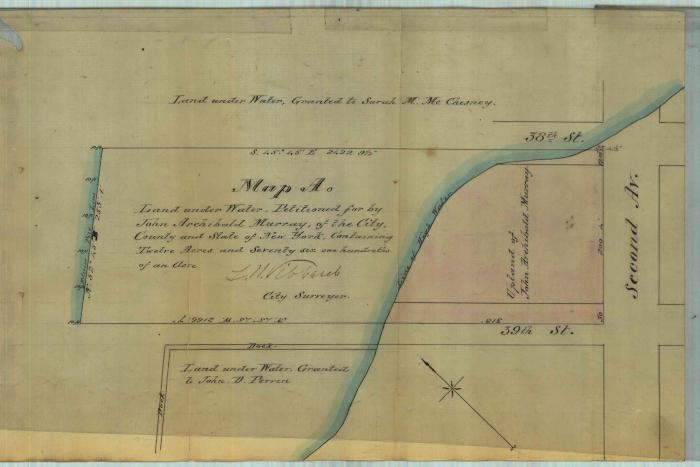 Land under Water, Granted to Sarah M. Mc Chesney.
38th St.
S. 45° 45' E. 2492
Map A.
Land under Water Petitioned for by
John Archibald Murray, of the City,
County and State of New York, Containing
Twelve Acres and Seventy six one hundredths
of an Acre
City Surveyor.
Line of High Water
Upland of
John Archibald Murray
Second Av.
200
50
318.
39th St.
Dock.
Dock
Land under Water. Granted
to John D. Perrin